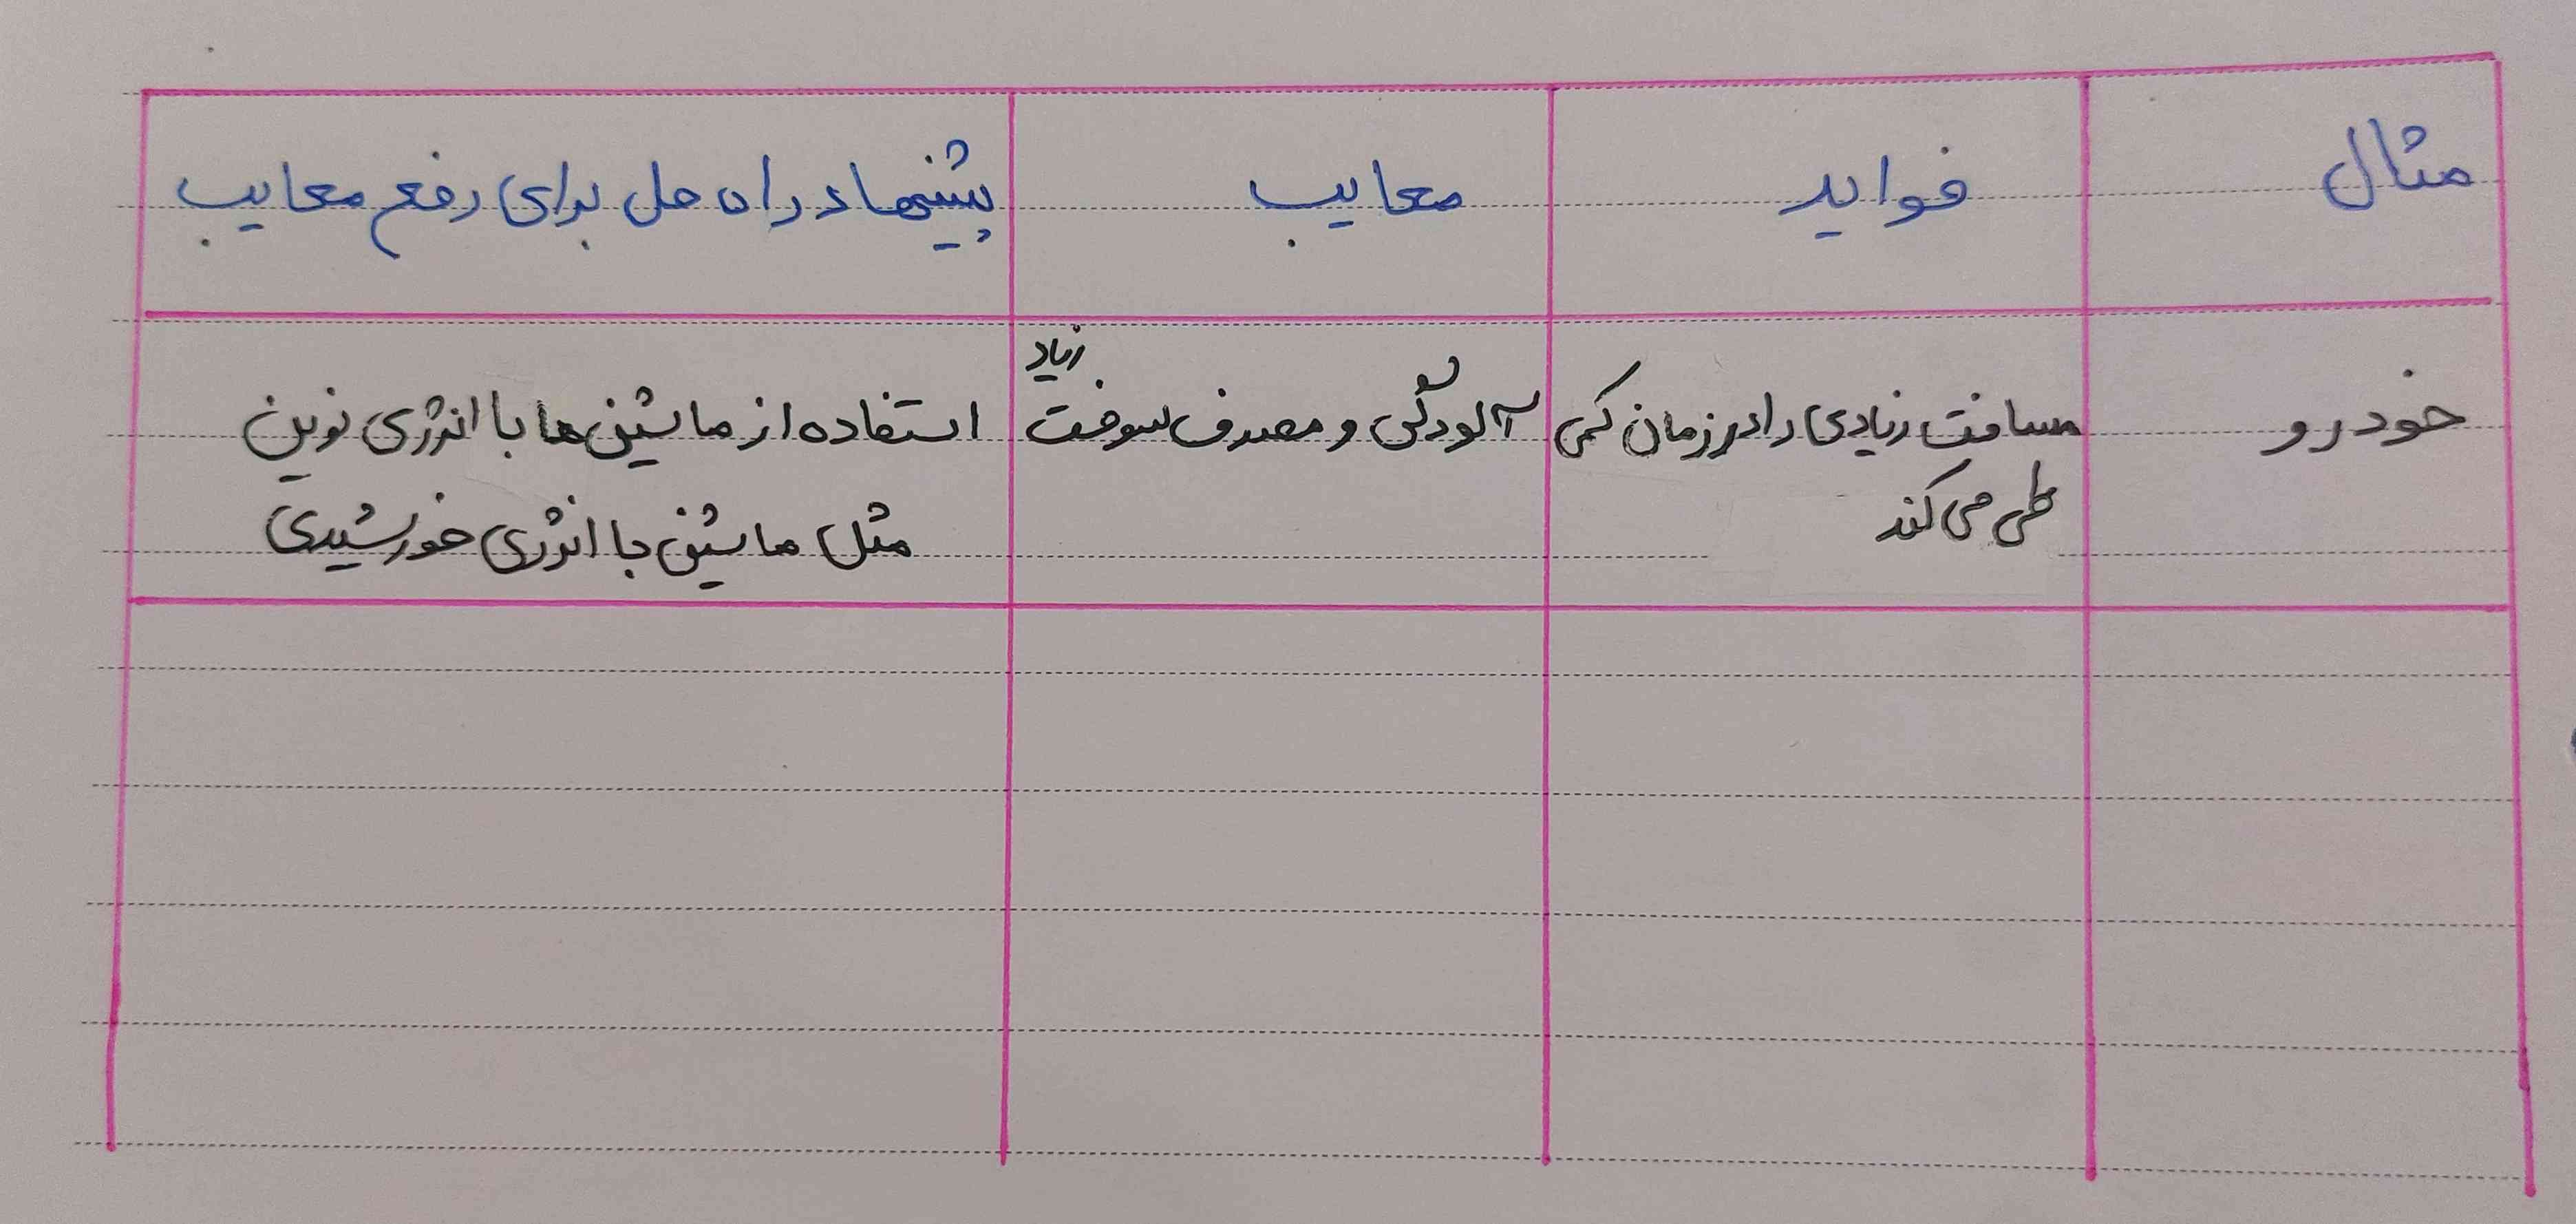 مثال فواید معایب پیشنهاد راه حل برای رفع معایب
خودرو مسافت زیادی را در زمان کمی آلودگی و مصرف سوخت زیاد استفاده از ماشین ها با انرژی نوین
طی می کند مثل ماشین با انرژی خورشیدی